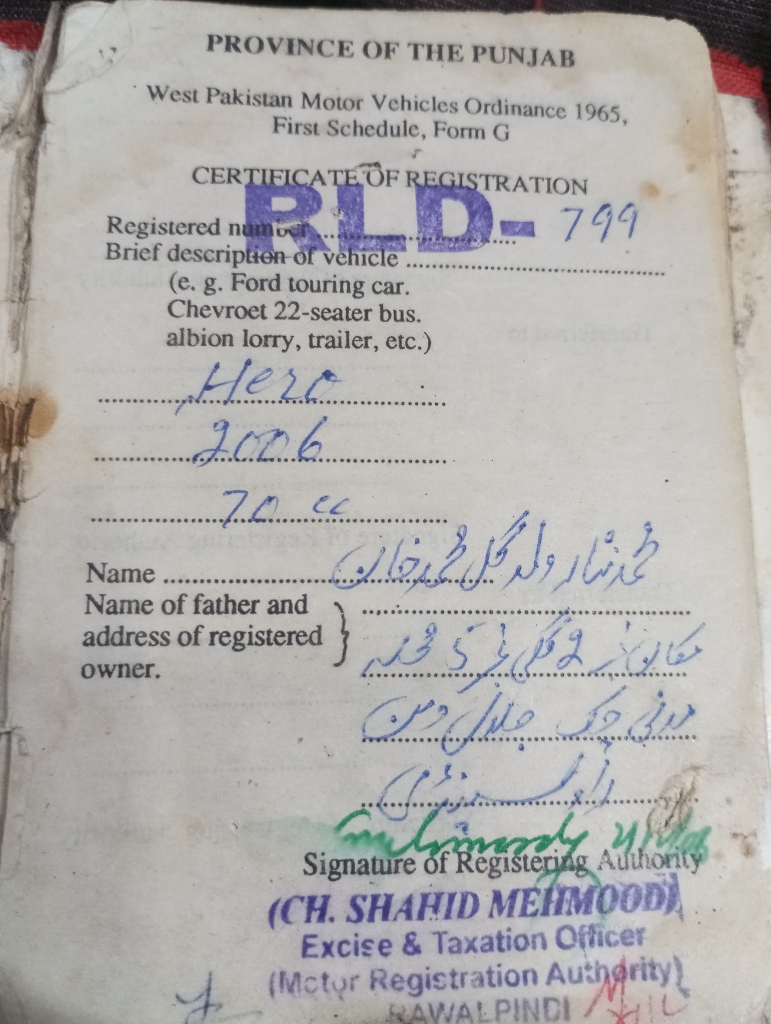 PROVINCE OF THE PUNJAB
West Pakistan Motor Vehicles Ordinance 1965,
First Schedule, Form G
CERTIFICATE OF REGISTRATION
Registered number .......... RLD- 799
Brief description of vehicle ..........
(e. g. Ford touring car.
Chevroet 22-seater bus.
albion lorry, trailer, etc.)
Hero
2006
70 cc
Name .......... محمد نثار ولد گل محمد خان
Name of father and
address of registered
owner.
مکان نمبر 2 گلی نمبر 5 محلہ
مدنی چک جلال دین
راولپنڈی
Signature of Registering Authority
(CH. SHAHID MEHMOOD)
Excise & Taxation Officer
(Motor Registration Authority)
RAWALPINDI